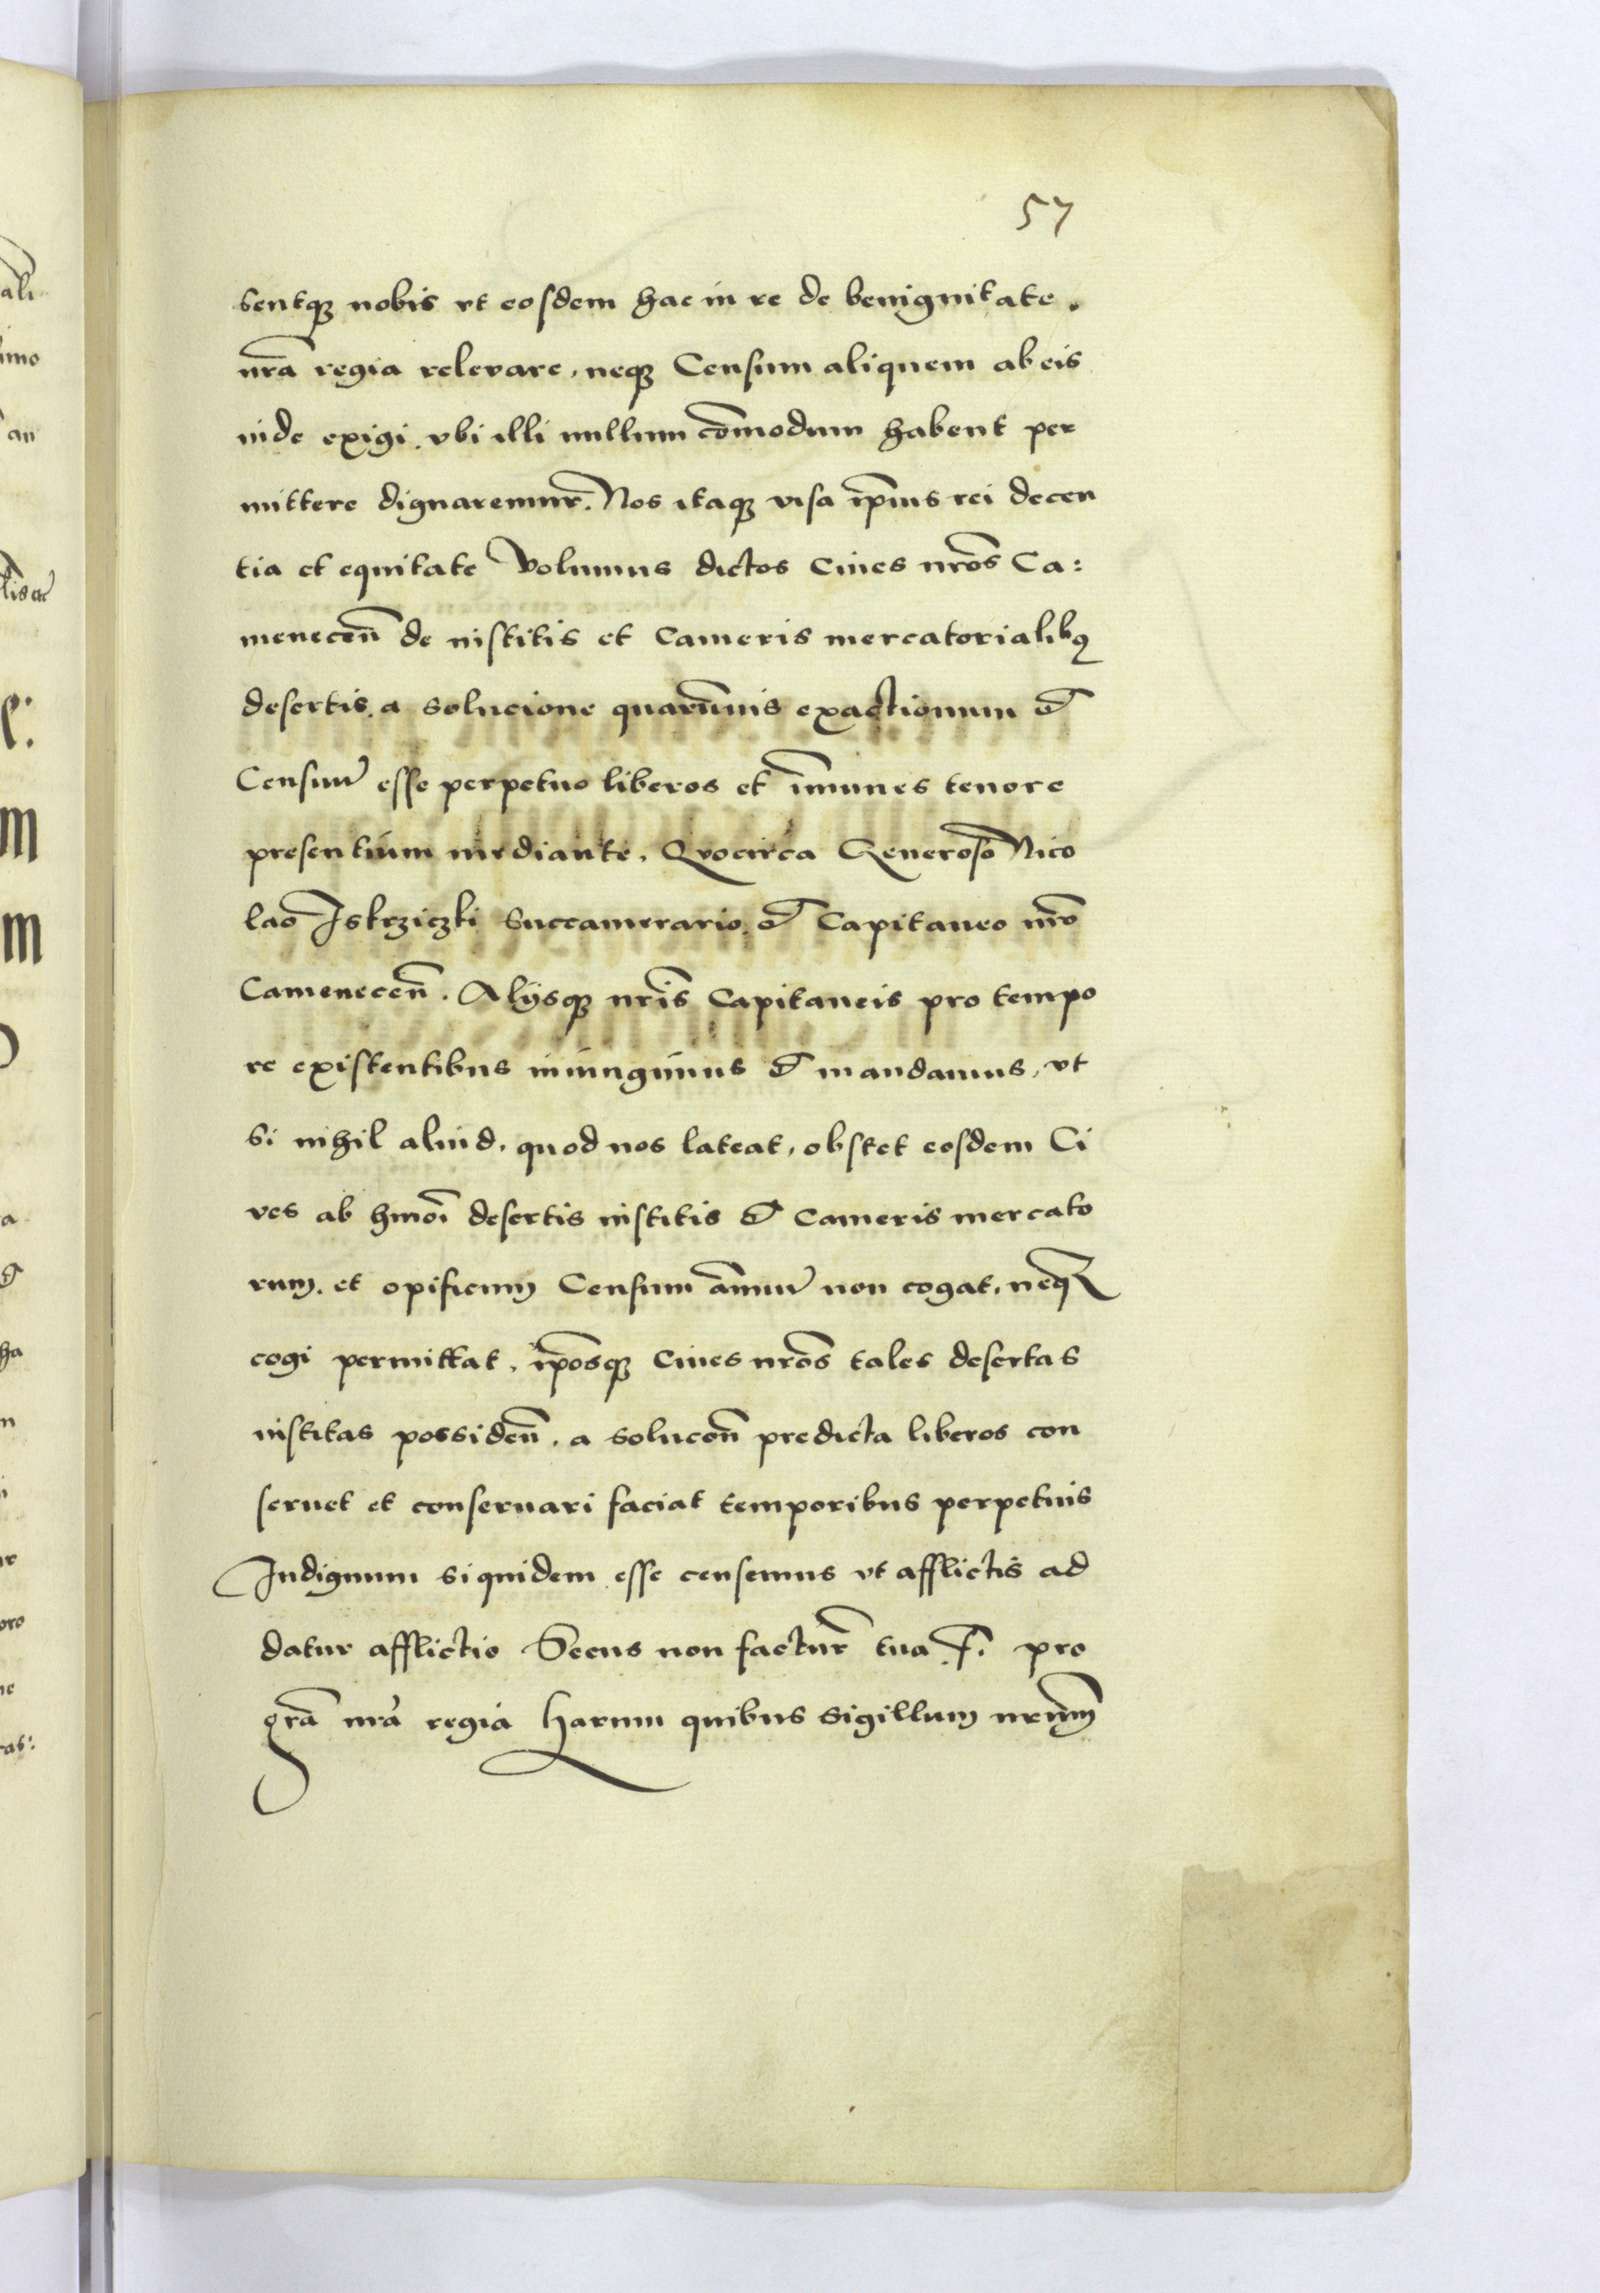 57
bentqʒ nobis vt eosdem hac in re de benignitate.
nrã regia relevare, neqʒ Censum aliquem ab eis
inde exigi. vbi illi nullum cõmodum habent per
mittere dignaremur. Nos itaqʒ visa ip̃ius rei decen
tia et equitate Volumus dictos Ciues nrõs Ca:
menecen̄ de institis et Cameris mercatorialibꝫ
desertis. a solucione quarũuis exactionum &
Censuũ esse perpetuo liberos et im̃unes tenore
presentium mediante. Quocirca Generoso Nico
lao Iskrziczki Succamerario. & Capitaneo nrõ
Camenecen̄. Alijsqʒ nrĩs Capitaneis pro tempo
re existentibus iniungimus & mandamus, vt
si nihil aliud, quod nos lateat, obstet eosdem Ci
ves ab hmõi desertis institis & Cameris mercato
rum. et opificum Censum ãnuũ non cogat, neqʒ
cogi permittat, ip̃osqʒ Ciues nrõs tales desertas
institas possiden̄. a solucõn predicta liberos con
seruet et conseruari faciat temporibus perpetuis
Indignum siquidem esse censemus vt afflictis ad
datur afflictio Secus non factur̃ tua F. pro
grã nrã regia Harum quibus sigillum nrũm